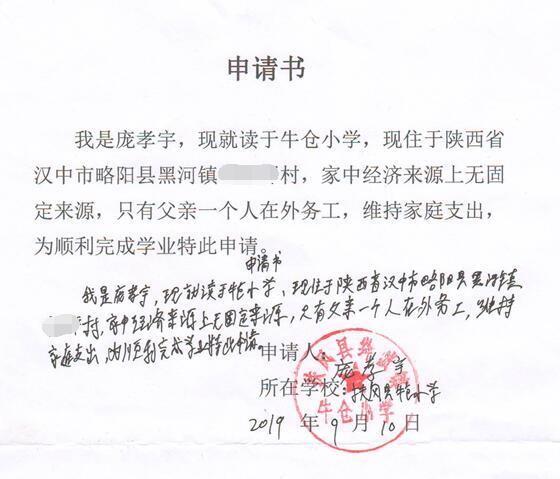 申请书
我是庞孝宇，现就读于牛仓小学，现住于陕西省
汉中市略阳县黑河镇 村，家中经济来源上无固
定来源，只有父亲一个人在外务工，维持家庭支出，
为顺利完成学业特此申请。
申请书
我是庞孝宇，现就读于牛仓小学，现住于陕西省汉中市略阳县黑河镇
村，家中经济来源上无固定来源，只有父亲一个人在外务工，维持
家庭支出，为顺利完成学业特此申请。
申请人：庞孝宇
所在学校：扶风县牛仓小学
牛仓小学
2019 年 9 月 10 日